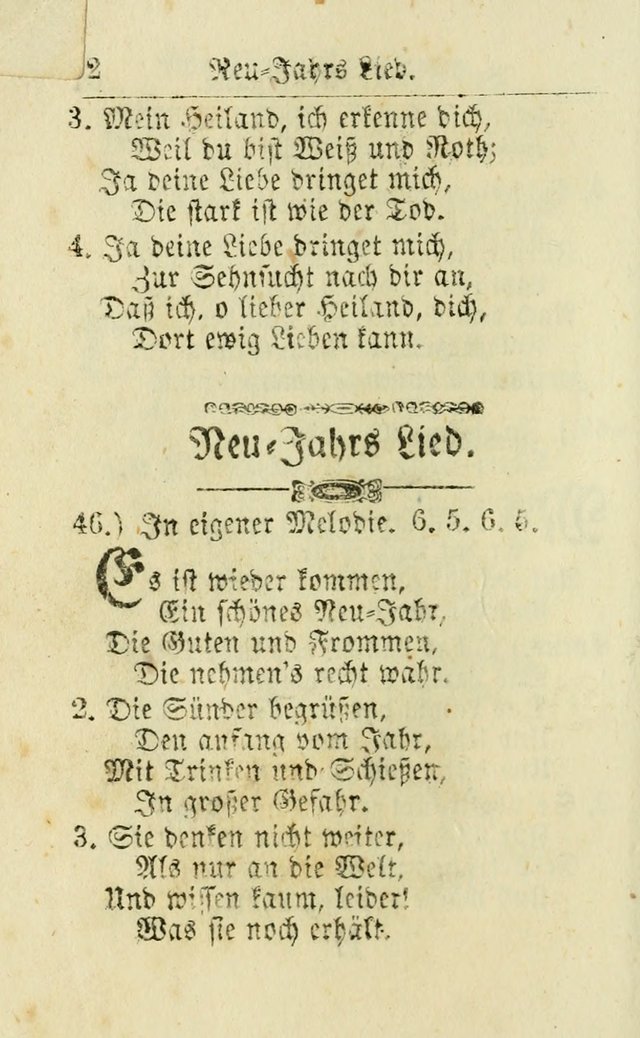 2 Neu-Jahrs Lied.
3. Mein Heiland, ich erkenne dich,
Weil du bist Weiß und Roth;
Ja deine Liebe dringet mich,
Die stark ist wie der Tod.
4. Ja deine Liebe dringet mich,
Zur Sehnsucht nach dir an,
Daß ich, o lieber Heiland, dich,
Dort ewig Lieben kann.
Neu-Jahrs Lied.
46.) In eigener Melodie. 6. 5. 6. 5.
Es ist wieder kommen,
Ein schönes Neu-Jahr,
Die Guten und Frommen,
Die nehmen's recht wahr.
2. Die Sünder begrüßen,
Den anfang vom Jahr,
Mit Trinken und Schießen,
In großer Gefahr.
3. Sie denken nicht weiter,
Als nur an die Welt,
Und wissen kaum, leider!
Was sie noch erhält.